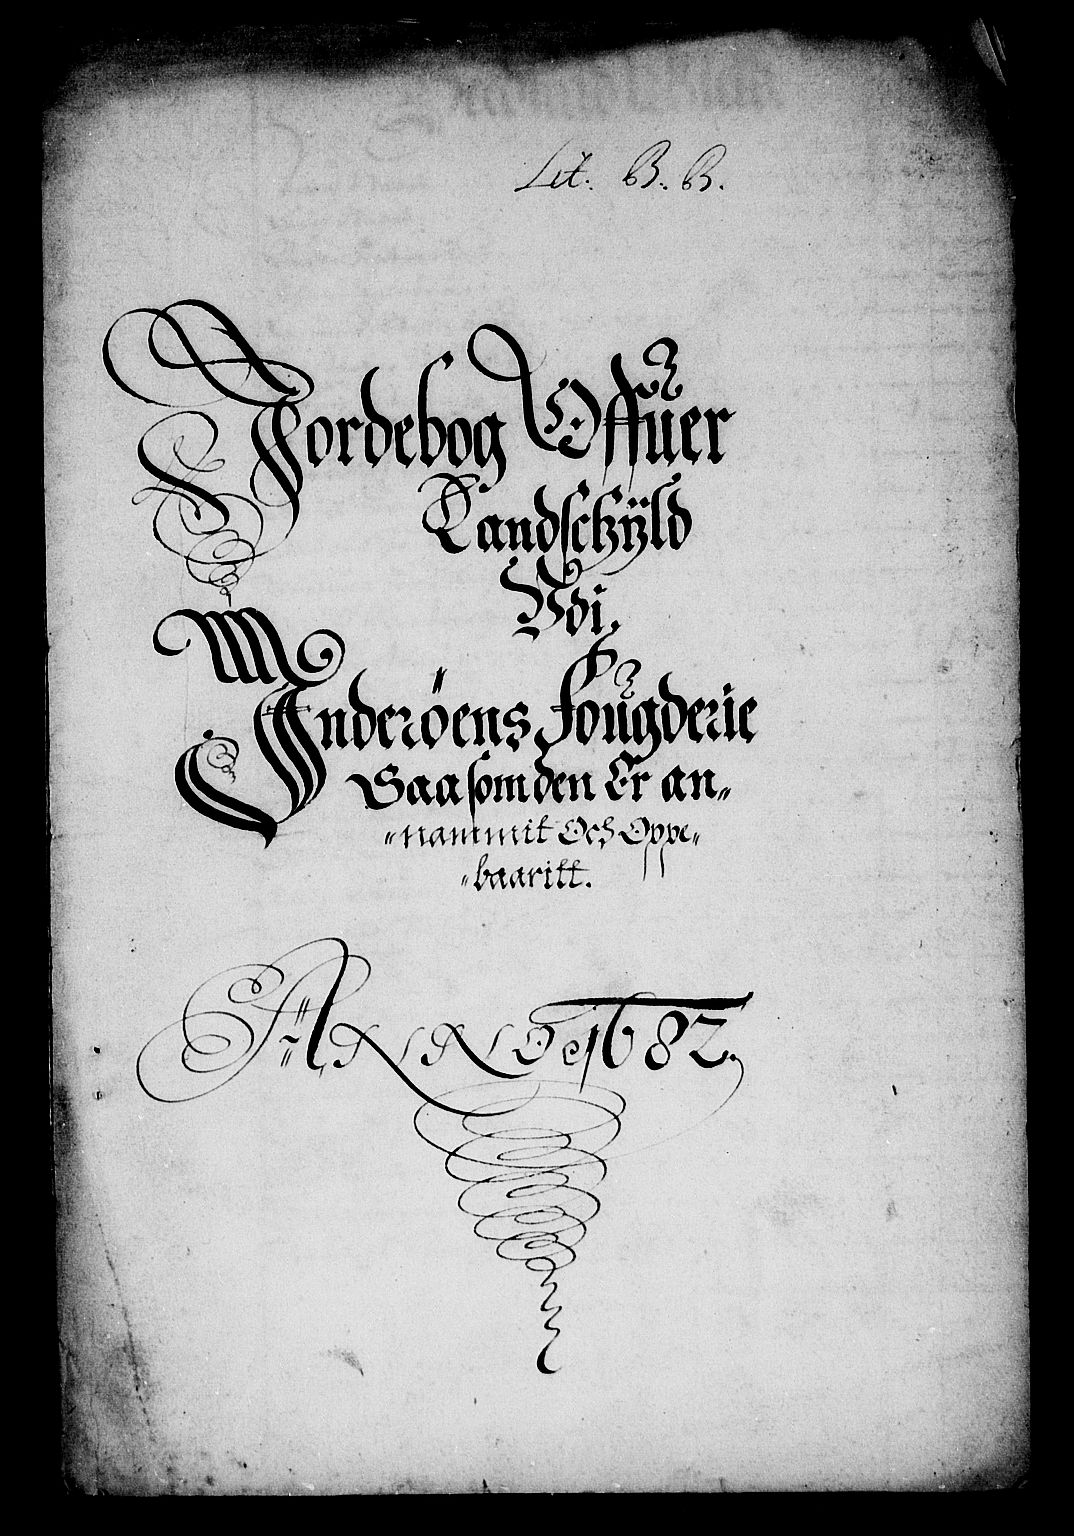 Lit. B. B.
Jordebog Offuer
Landschÿld
Vdi,
Inderöens Fougderie
Saasom den Er an„
„nammit Och Oppe„
„baaritt.
ANNO 1682.